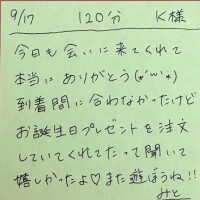 9/17 120分 K様
今日も会いに来てくれて
本当にありがとう(*´w`*)
到着間に合わなかったけど
お誕生日プレゼントを注文
していてくれてたって聞いて
嬉しかったよ♡また遊ぼうね!!
みと